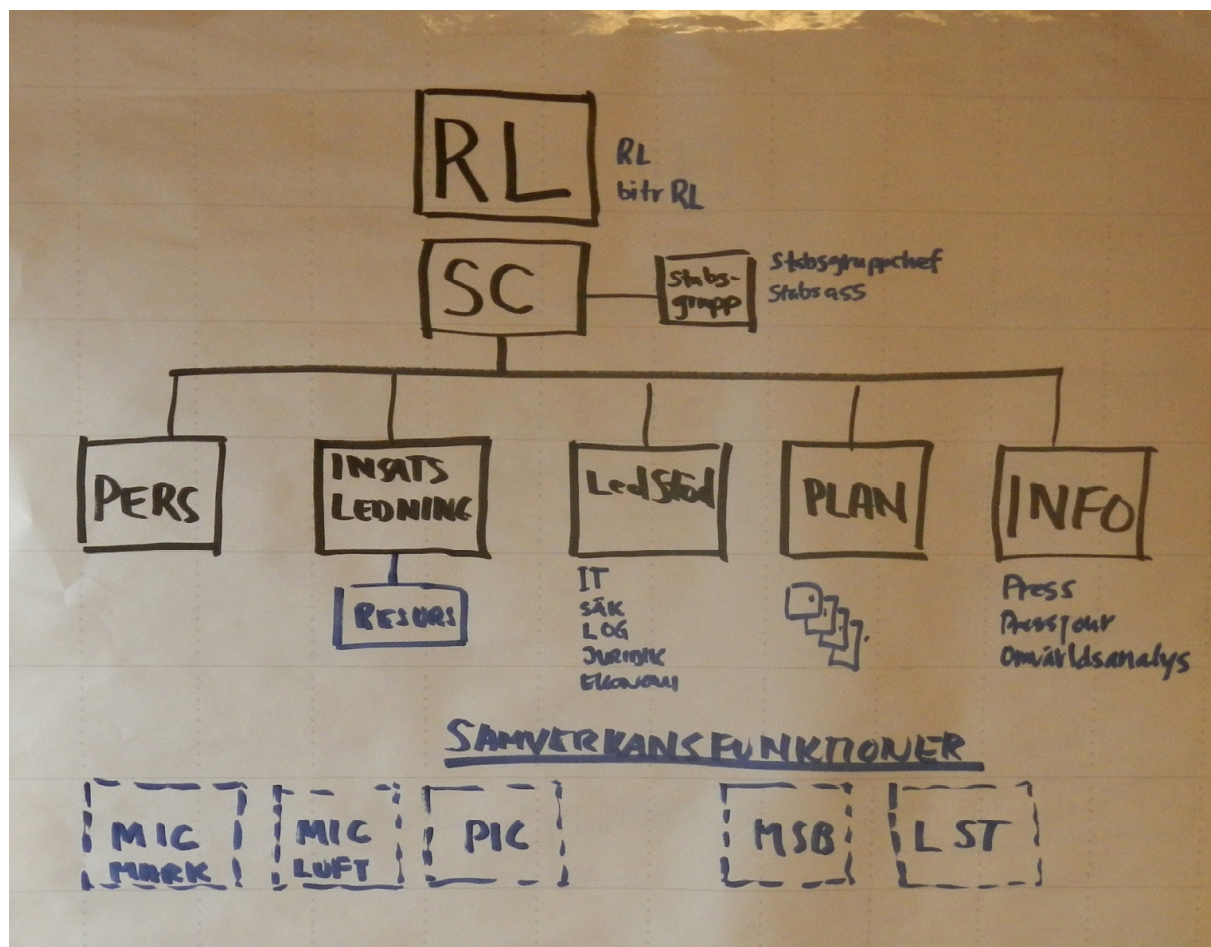 RL
RL
bitr RL
SC
Stabs-
grupp
Stabsgruppchef
Stabsass
PERS
INSATS
LEDNING
LedStöd
PLAN
INFO
RESURS
IT
SÄK
LOG
JURIDIK
EKONOMI
Press
Pressjour
Omvärldsanalys
SAMVERKANSFUNKTIONER
MIC
MARK
MIC
LUFT
PIC
MSB
LST